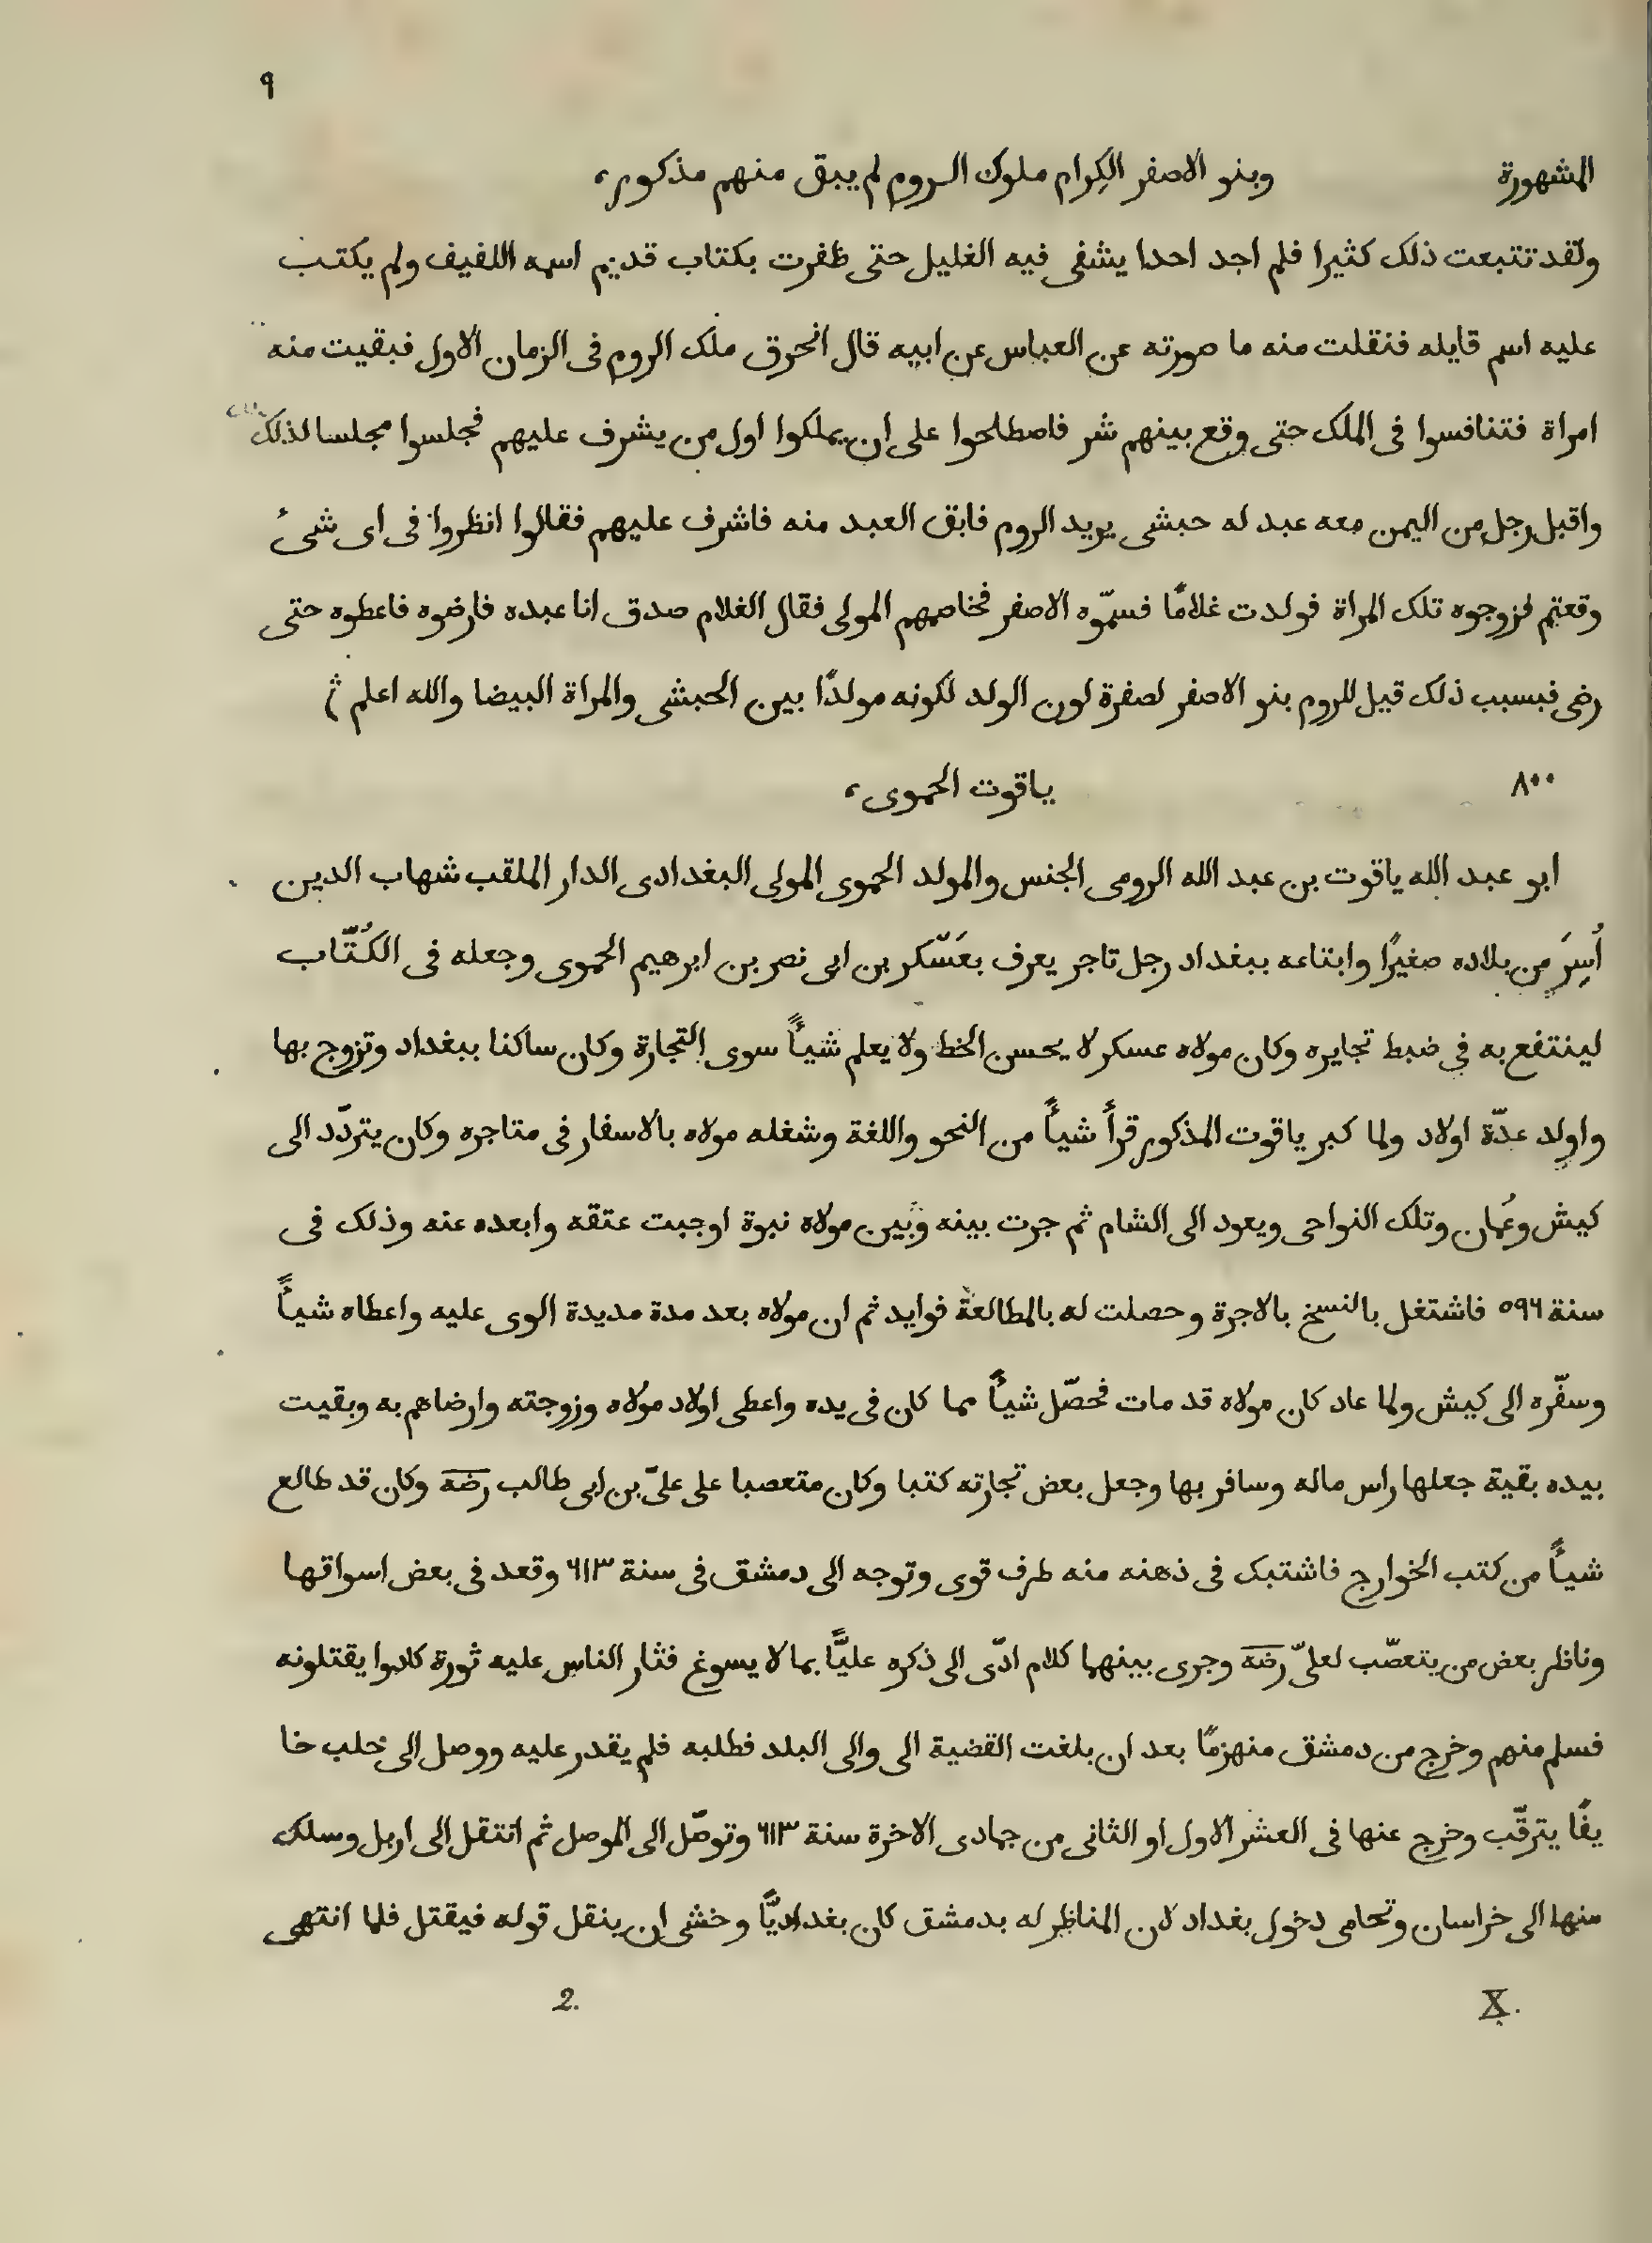 ٩
المشهورة وبنو الاصفر الكِرام ملوك الروم لم يبق منهم مذكور،
ولقد تتبعت ذلك كثيرا فلم اجد احدا يشفى فيه الغليل حتى ظفرت بكتاب قديم اسمه اللفيف ولم يكتب
عليه اسم قايله فنقلت منه ما صورته عن العباس عن ابيه قال انخرق ملك الروم فى الزمان الاول فبقيت منه
امراة فتنافسوا فى الملك حتى وقع بينهم شر فاصطلحوا على ان يملكوا اول من يشرف عليهم فجلسوا مجلسا لذلك
واقبل رجل من اليمن معه عبد له حبشى يريد الروم فابق العبد منه فاشرف عليهم فقالوا انظروا فى اى شىءُ
وقعتم فزوجوه تلك المراة فولدت غلامًا فسمّوه الاصفر فخاصمهم المولى فقال الغلام صدق انا عبده فارضوه فاعطوه حتى
رضى فبسبب ذلك قيل للروم بنو الاصفر لصفرة لون الولد لكونه مولدًا بين الحبشى والمراة البيضا والله اعلم
٨٠٠ ياقوت الحموى،
ابو عبد الله ياقوت بن عبد الله الرومى الجنس والمولد الحموى المولى البغدادى الدار الملقب شهاب الدين
أُسِرَ من بلاده صغيرًا وابتاعه ببغداد رجل تاجر يعرف بعَسّكر بن ابى نصر بن ابرهيم الحموى وجعله فى الكُتّاب
لينتفع به في ضبط تجايره وكان مولاه عسكر لا يحسن الخط ولا يعلم شيأً سوى التجارة وكان ساكنا ببغداد وتزوج بها
واولد عدّة اولاد ولما كبر ياقوت المذكور قرأ شيأً من النحو واللغة وشغله مولاه بالاسفار فى متاجره وكان يتردّد الى
كيش وعُمان وتلك النواحى ويعود الى الشام ثم جرت بينه وبين مولاه نبوة اوجبت عتقه وابعده عنه وذلك فى
سنة ٥٩٦ فاشتغل بالنسخ بالاجرة وحصلت له بالمطالعة فوايد ثم ان مولاه بعد مدة مديدة الوى عليه واعطاه شيأً
وسفّره الى كيش ولما عاد كان مولاه قد مات فحصّل شيأً مما كان فى يده واعطى اولاد مولاه وزوجته وارضاهم به وبقيت
بيده بقية جعلها راس ماله وسافر بها وجعل بعض تجارته كتبا وكان متعصبا على علىّ بن ابى طالب رضه وكان قد طالع
شيأً من كتب الخوارج فاشتبك فى ذهنه منه طرف قوى وتوجه الى دمشق فى سنة ٦١٣ وقعد فى بعض اسواقها
وناظر بعض من يتعصّب لعلىّ رضه وجرى بينهما كلام ادّى الى ذكره عليًّا بما لا يسوغ فثار الناس عليه ثورة كادوا يقتلونه
فسلم منهم وخرج من دمشق منهزمًا بعد ان بلغت القضية الى والى البلد فطلبه فلم يقدر عليه ووصل الى حلب خا
يفًا يترقّب وخرج عنها فى العشر الاول او الثانى من جمادى الاخرة سنة ٦١٣ وتوصّل الى الموصل ثم انتقل الى اربل وسلك
منها الى خراسان وتحامى دخول بغداد لان المناظر له بدمشق كان بغداديًّا وخشى ان ينقل قوله فيقتل فلما انتهى
X. 2.